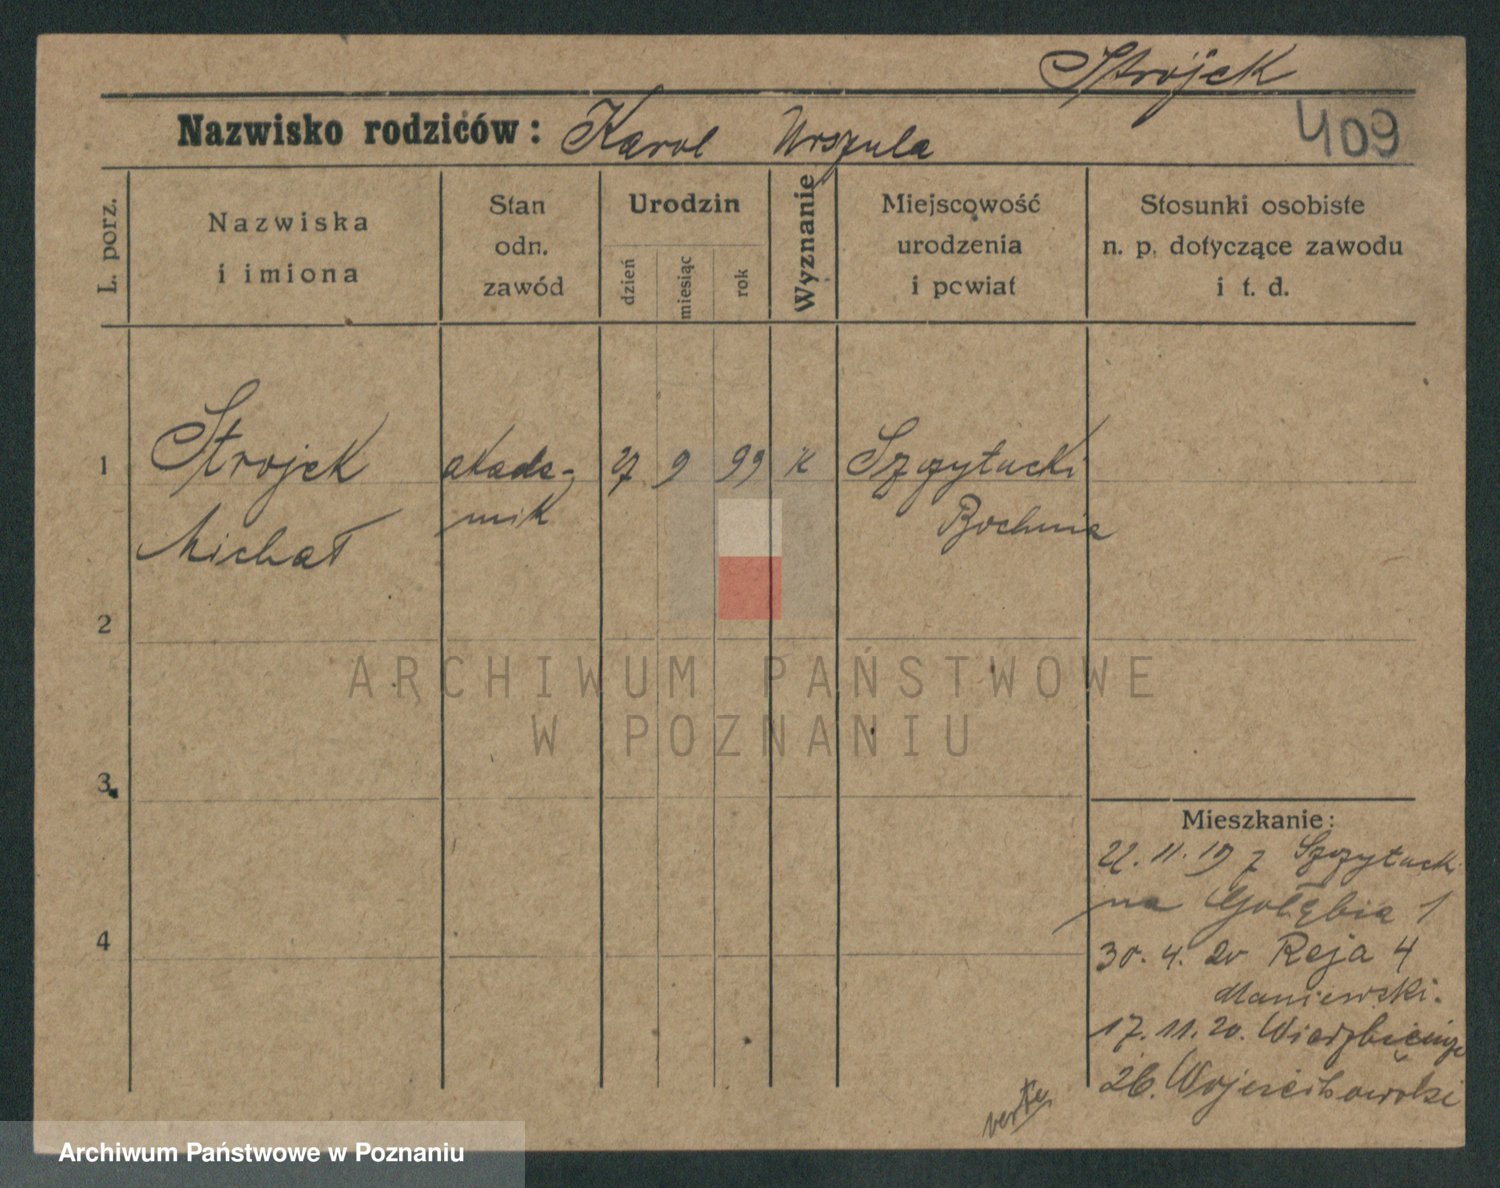 Strojek
Nazwisko rodziców: Karol Urszula
409
L. porz.
Nazwiska
i imiona
Stan
odn.
zawód
Urodzin
dzień
miesiąc
rok
Wyznanie
Miejscowość
urodzenia
i powiat
Stosunki osobiste
n. p. dotyczące zawodu
i t. d.
1
Strojek
Michał
akade-
mik
27 9 99 k
Szczytucki
Bochnia
2
3
4
ARCHIWUM PAŃSTWOWE
W POZNANIU
Mieszkanie:
22. 11. 19 z
na Gołębia 1
30. 4. 20 Reja 4
Maniewski.
17. 11. 20.
26.
verte
Archiwum Państwowe w Poznaniu